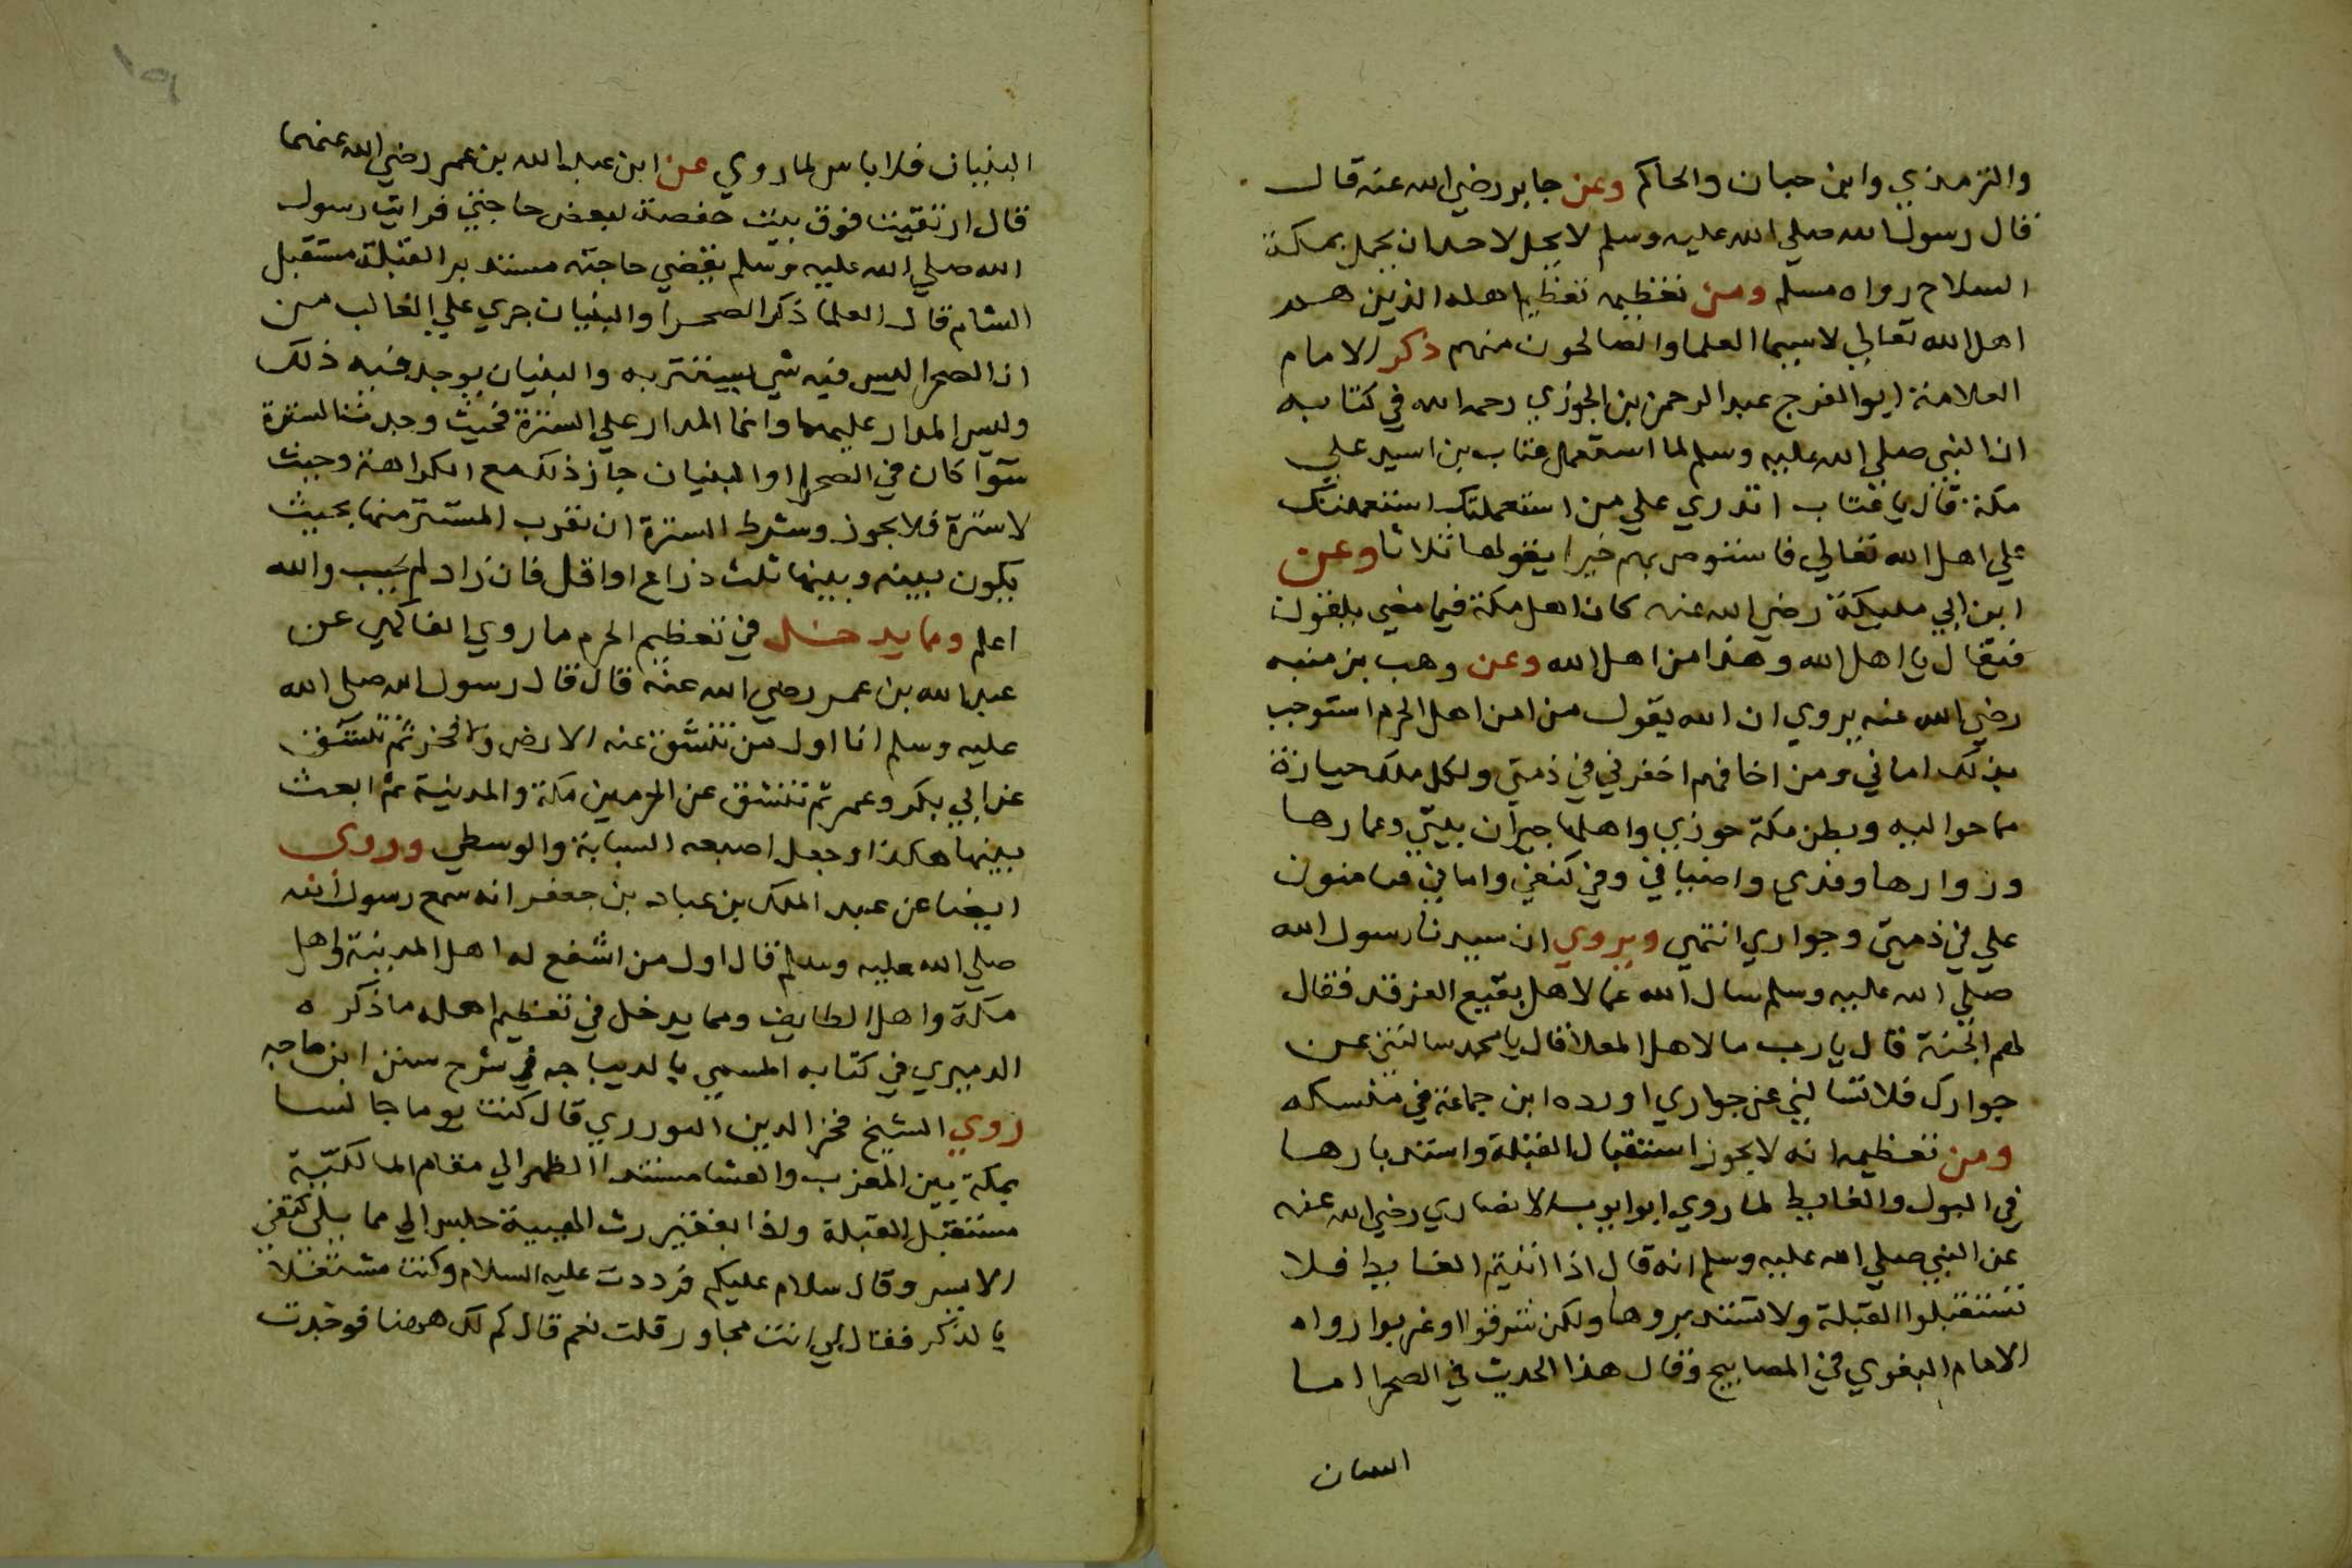 والترمذي وابن حبان والحاكم وعن جابر رضي الله عنه قال
قال رسول الله صلي الله عليه وسلم لا يحل لاحد ان يحمل بمكة
السلاح رواه مسلم ومن تعظيمه تعظيم اهله الذين هم
اهل الله تعالي لا سيما العلما والصالحون منهم ذكر الامام
العلامة ابو الفرج عبد الرحمن بن الجوزي رحمه الله في كتابه
ان النبي صلي الله عليه وسلم لما استعمل عتاب بن اسيد علي
مكة قال يا عتاب اتدري علي من استعملتك استعملتك
علي اهل الله تعالي فاستوص بهم خيرا يقولها ثلاثا وعن
ابن ابي مليكة رضي الله عنه كان اهل مكة فيما مضي يلقون
فيقال يا اهل الله وهذا من اهل الله وعن وهب بن منبه
رضي الله عنه يروي ان الله يقول من امن اهل الحرم استوجب
بذلك اماني ومن اخافهم اخفرني في ذمتي ولكل ملك حيازة
مما حواليه وبطن مكة حوزي واهلها جيران بيتي وعمارها
وزوارها وفدي واضيافي وفي كنفي واماني ضامنون
علي في ذمتي وجواري انتهي ويروي ان سيدنا رسول الله
صلي الله عليه وسلم سال الله عما لاهل بقيع الغرقد فقال
لهم الجنة قال يا رب ما لاهل المعلا قال يا محمد سالتني عن
جوارك فلا تسالني عن جواري اورده ابن جماعة في منسكه
ومن تعظيمه انه لا يجوز استقبال القبلة واستدبارها
في البول والغايط لما روي ابو ايوب الانصاري رضي الله عنه
عن النبي صلي الله عليه وسلم انه قال اذا اتيتم الغايط فلا
تستقبلوا القبلة ولا تستدبروها ولكن شرقوا او غربوا رواه
الامام البغوي في المصابيح وقال هذا الحديث في الصحرا اما
البنيان
البنيان فلا باس لما روي عن ابن عبد الله بن عمر رضي الله عنهما
قال ارتقيت فوق بيت حفصة لبعض حاجتي فرايت رسول
الله صلي الله عليه وسلم يقضي حاجته مستدبر القبلة مستقبل
الشام قال العلما ذكر الصحرا والبنيان جري علي الغالب من
ان الصحرا ليس فيه شي يستتر به والبنيان يوجد فيه ذلك
وليس المدار عليهما وانما المدار علي السترة فحيث وجدت السترة
سوآ كان في الصحرا او البنيان جاز ذلك مع الكراهة وحيث
لا سترة فلا يجوز وشرط السترة ان يقرب المستتر منها بحيث
يكون بينه وبينها ثلث ذراع او اقل فان زاد لم يجب والله
اعلم ومما يدخل في تعظيم الحرم ما روي الفاكهي عن
عبد الله بن عمر رضي الله عنه قال قال رسول الله صلي الله
عليه وسلم انا اول من تنشق عنه الارض ولا فخر ثم تنشق
عن ابي بكر وعمر ثم تنشق عن الحرمين مكة والمدينة ثم ابعث
بينهما هكذا وجعل اصبعه السبابة والوسطي وروي
ايضا عن عبد الملك بن عباد بن جعفر انه سمع رسول الله
صلي الله عليه وسلم قال اول من اشفع له اهل المدينة واهل
مكة واهل الطايف ومما يدخل في تعظيم اهله ما ذكره
الدميري في كتابه المسمي بالديباجه في شرح سنن ابن ماجه
روي الشيخ فخر الدين قال كنت يوما جالسا
بمكة بين المغرب والعشا مسندا الظهر الي مقام المالكية
مستقبل القبلة واذا بفقير رث الهيية جلس الي مما يلي كتفي
الايسر وقال سلام عليكم فرددت عليه السلام وكنت مشتغلا
بالذكر فقال لي انت مجاور قلت نعم قال كم لك ههنا فوجدت